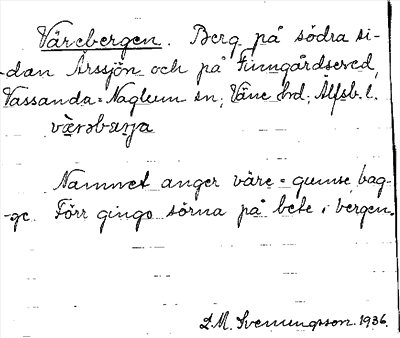 Värebergen. Berg på södra si-
-dan Årssjön och på Finngårdsered,
Vassanda=Naglum sn, Väne hd, Älfsb. l.
värəbærja
Namnet anger väre = gumse, bag-
-ge. Förr gingo sörna på bete i bergen.
L.M. Svenungsson. 1936.